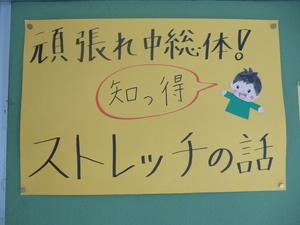 頑張れ中総体!
知っ得
ストレッチの話